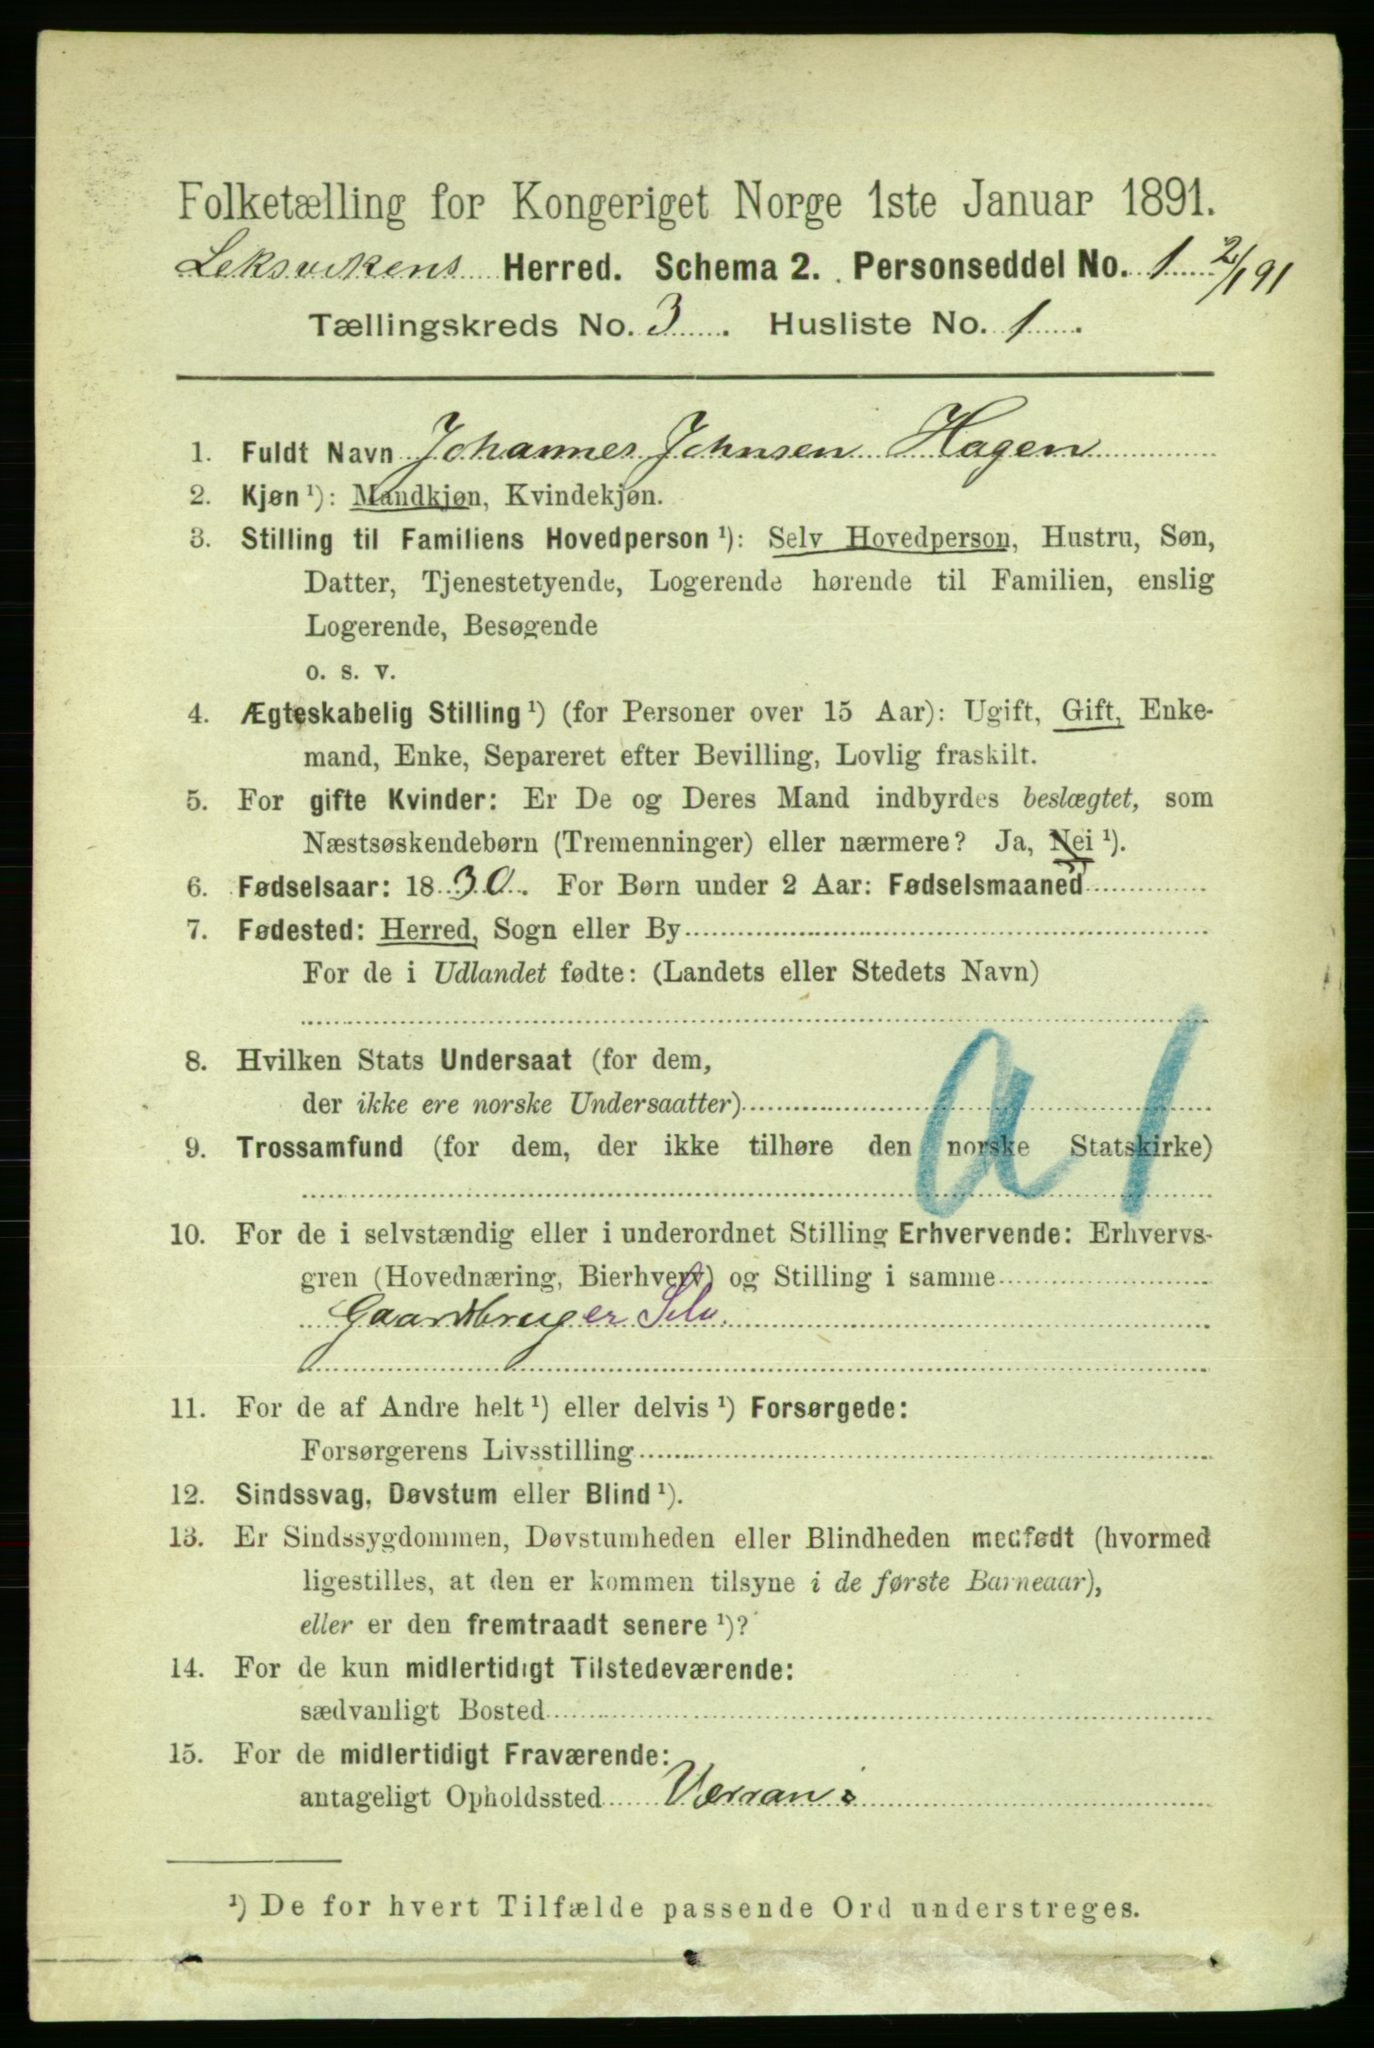 Folketælling for Kongeriget Norge 1ste Januar 1891.
Leksvikens Herred. Schema 2. Personseddel No. 1 2/1 91
Tællingskreds No. 3. Husliste No. 1.
1. Fuldt Navn Johannes Johnsen Hagen
2. Kjøn ¹): Mandkjøn, Kvindekjøn.
3. Stilling til Familiens Hovedperson ¹): Selv Hovedperson, Hustru, Søn,
Datter, Tjenestetyende, Logerende hørende til Familien, enslig
Logerende, Besøgende
o. s. v.
4. Ægteskabelig Stilling ¹) (for Personer over 15 Aar): Ugift, Gift, Enke-
mand, Enke, Separeret efter Bevilling, Lovlig fraskilt.
5. For gifte Kvinder: Er De og Deres Mand indbyrdes beslægtet, som
Næstsøskendebørn (Tremenninger) eller nærmere? Ja, Nei ¹).
6. Fødselsaar: 1830. For Børn under 2 Aar: Fødselsmaaned
7. Fødested: Herred, Sogn eller By
For de i Udlandet fødte: (Landets eller Stedets Navn)
8. Hvilken Stats Undersaat (for dem,
der ikke ere norske Undersaatter)
a 1
9. Trossamfund (for dem, der ikke tilhøre den norske Statskirke)
10. For de i selvstændig eller i underordnet Stilling Erhvervende: Erhvervs-
gren (Hovednæring, Bierhverv) og Stilling i samme
Gaardbruger Selv.
11. For de af Andre helt ¹) eller delvis ¹) Forsørgede:
Forsørgerens Livsstilling
12. Sindssvag, Døvstum eller Blind ¹).
13. Er Sindssygdommen, Døvstumheden eller Blindheden medfødt (hvormed
ligestilles, at den er kommen tilsyne i de første Barneaar),
eller er den fremtraadt senere ¹)?
14. For de kun midlertidigt Tilstedeværende:
sædvanligt Bosted
15. For de midlertidigt Fraværende:
antageligt Opholdssted Værran
¹) De for hvert Tilfælde passende Ord understreges.